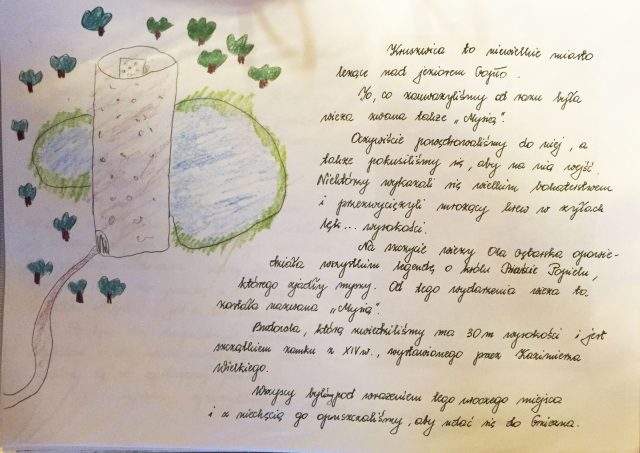 Kruszwica to niewielkie miasto
leżące nad jeziorem Gopło.
To, co zauważyliśmy od razu była
wieża zwana także „Mysią".
Oczywiście powędrowaliśmy do niej, a
także pokusiliśmy się, aby na nią wejść.
Niektórzy wykazali się wielkim bohaterstwem
i przezwyciężyli mrożący krew w żyłach
lęk... wysokości.
Na szczycie wieży Ola opowie-
działa wszystkim legendę o królu Popielu,
którego zjadły myszy. Od tego wydarzenia wieża ta
została nazwana „Mysią".
Budowla, którą zwiedziliśmy ma 30 m wysokości i jest
szczątkiem zamku z XIV w., wystawionego przez Kazimierza
Wielkiego.
Wszyscy byli pod wrażeniem tego uroczego miejsca
i z niechęcią go opuszczaliśmy, aby udać się do Gniezna.